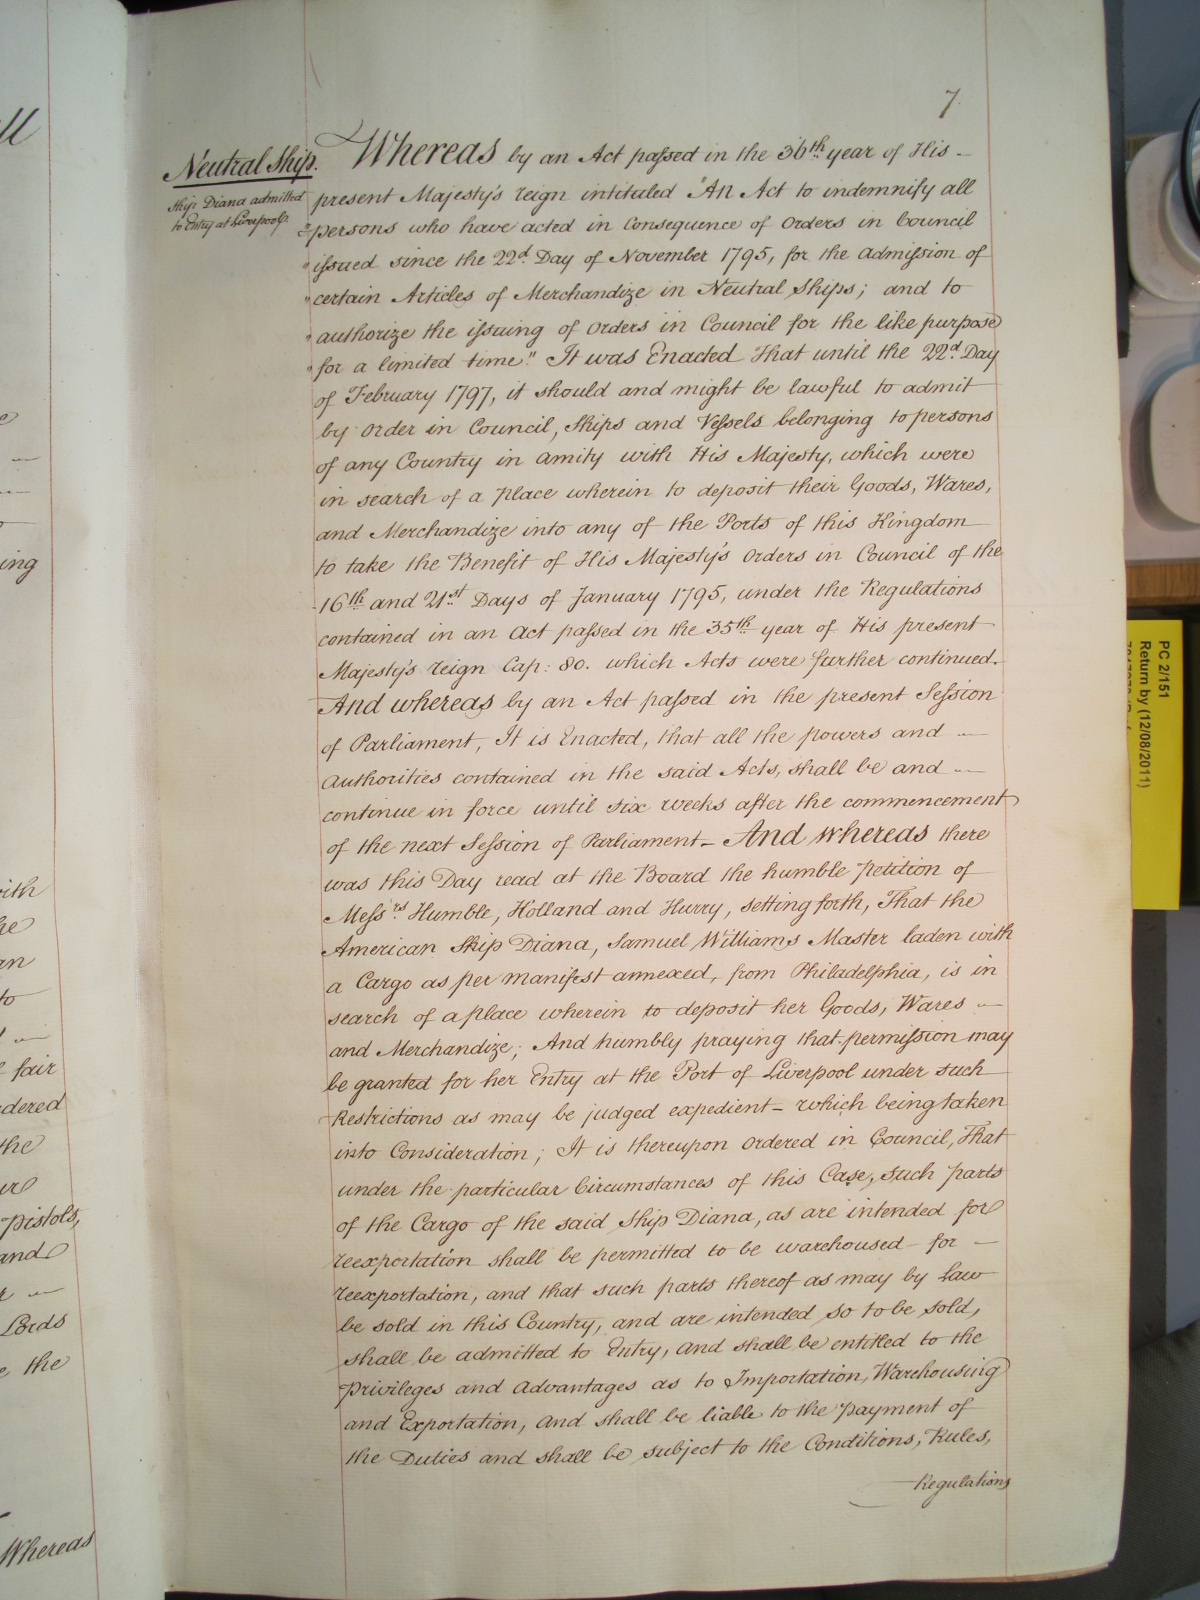 7
Neutral Ship.
Ship Diana admitted
to Entry at Liverpool
Whereas by an Act passed in the 36th year of His
present Majesty's reign intituled "An Act to indemnify all
" persons who have acted in Consequence of Orders in Council
" issued since the 22d Day of November 1795, for the admission of
" certain Articles of Merchandize in Neutral Ships; and to
" authorize the issuing of Orders in Council for the like purpose
" for a limited time." It was Enacted That until the 22d Day
of February 1797, it should and might be lawful to admit
by Order in Council, Ships and Vessels belonging to persons
of any Country in amity with His Majesty, which were
in search of a Place wherein to deposit their Goods, Wares,
and Merchandize into any of the Ports of this Kingdom
to take the Benefit of His Majesty's Orders in Council of the
16th and 21st Days of January 1795, under the Regulations
contained in an Act passed in the 35th year of His present
Majesty's reign Cap: 80. which Acts were further continued.
And whereas by an Act passed in the present Session
of Parliament, It is Enacted, that all the powers and
Authorities contained in the said Acts, shall be and
continue in force until six weeks after the commencement
of the next Session of Parliament_ And whereas there
was this Day read at the Board the humble Petition of
Messrs. Humble, Holland and Hurry, setting forth, That the
American Ship Diana, Samuel Williams Master laden with
a Cargo as per manifest annexed, from Philadelphia, is in
search of a place wherein to deposit her Goods, Wares
and Merchandize; And humbly praying that permission may
be granted for her Entry at the Port of Liverpool under such
Restrictions as may be judged expedient_ which being taken
into Consideration; It is thereupon Ordered in Council, That
under the particular Circumstances of this Case, such parts
of the Cargo of the said Ship Diana, as are intended for
reexportation shall be permitted to be warehoused for
reexportation, and that such parts thereof as may by Law
be sold in this Country, and are intended so to be sold,
shall be admitted to Entry, and shall be entitled to the
Privileges and Advantages as to Importation, Warehousing
and Exportation, and shall be liable to the Payment of
the Duties and shall be subject to the Conditions, Rules,
Regulations
ing
with
he
an
to
fair
dered
the
pistols,
and
Lords
the
Whereas
PC 2/151
Return by (12/08/2011)